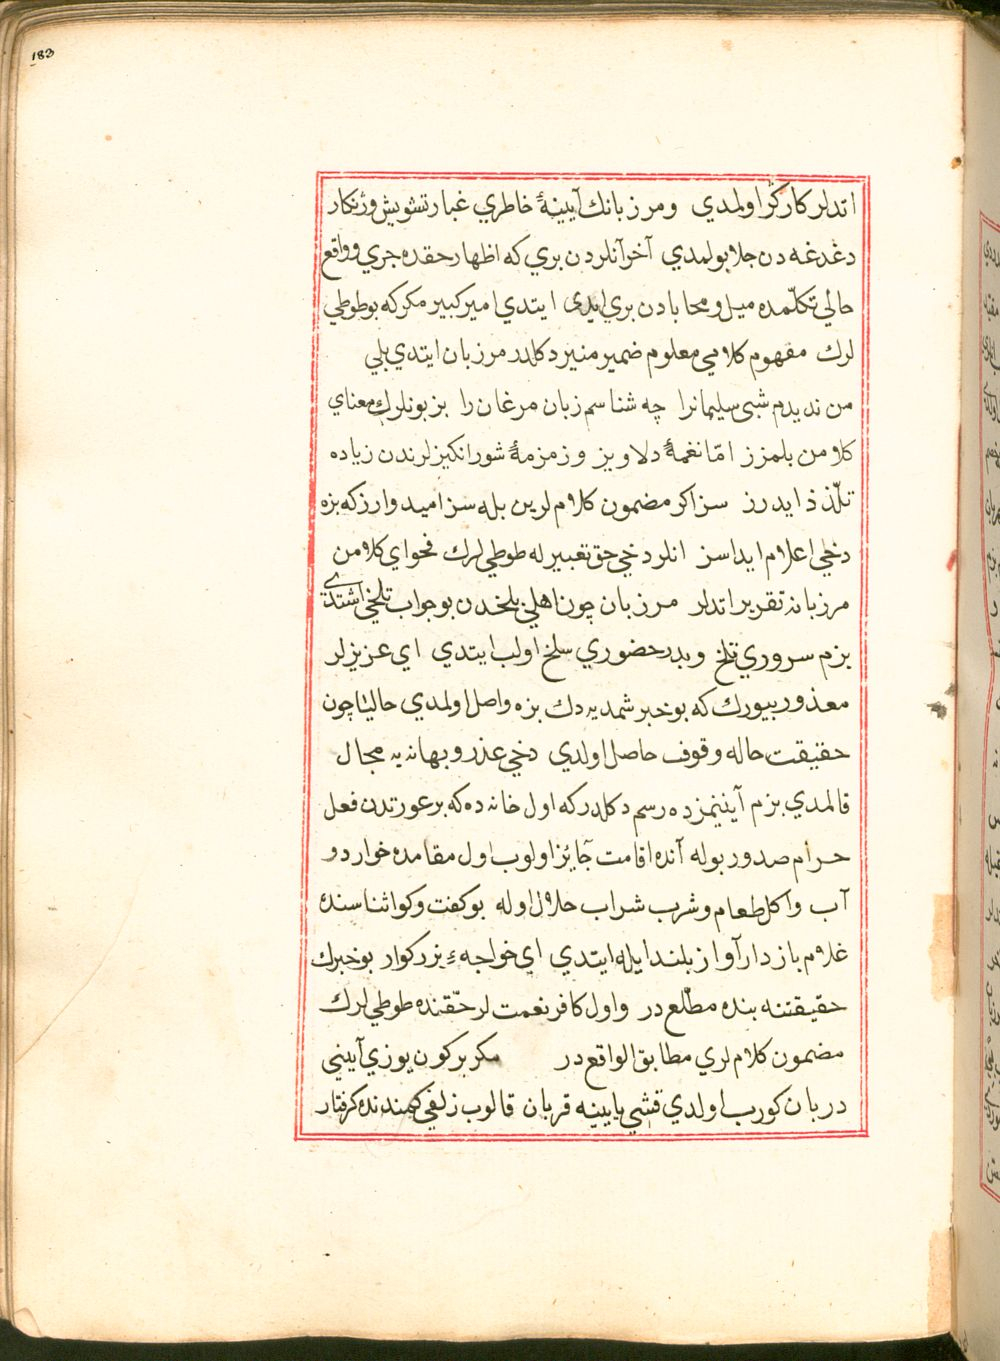 183
اتدلر كاركر اولمدي ومرزبانك آيينهٔ خاطري غبار تشويش وژنكار
دغدغه دن جلا بولمدي آخر آنلردن بري كه اظهار حقده جري و واقع
حالي تكلّمده ميل ومحابادن بري ايدى ايتدي امير كبير مكر كه بو طوطي
لرك مفهوم كلامي معلوم ضمير منير دكلدر مرزبان ايتدي بلي
من نديدم شبى سليمانرا چه شناسم زبان مرغان را بز بونلرك معناي
كلامن بلمزز امّا نغمهٔ دلاويز وزمزمهٔ شورانكيزلرندن زياده
تلّذذ ايدرز سز اكر مضمون كلاملرين بله سز اميدوارز كه بزه
دخي اعلام ايداسز انلر دخي حق تعبير له طوطي لرك فحواي كلامن
مرزبانه تقرير اتدلر مرزبان چون اهلي بلخدن بو جواب تلخي اشتدى
بزم سروري تلخ وبدر حضوري سلخ اولب ايتدي اي عزيزلر
معذور بيورك كه بو خبر شمديه دك بزه واصل اولمدي حاليا چون
حقيقت حاله وقوف حاصل اولدي دخي عذر وبهانه يه مجال
قالمدي بزم آيينمزده رسم دكلدر كه اول خانه ده كه بر عورتدن فعل
حرام صدور بوله آنده اقامت جٓايز اولوب اول مقامده خوار دو
آب واكل طعام وشرب شراب حلال اوله بو كفت وكو اثناسنده
غلام بازدار آواز بلند ايله ايتدي اي خواجهء بزركوار بو خبرك
حقيقتنه بنده مطّلع در واول كافر نعمت لر حقّنده طوطي لرك
مضمون كلاملري مطابق الواقع در مكر بر كون يوزي آييني
دربان كورب اولدي قشي يايينه قربان قالوب زلفي كمندنده كرفتار